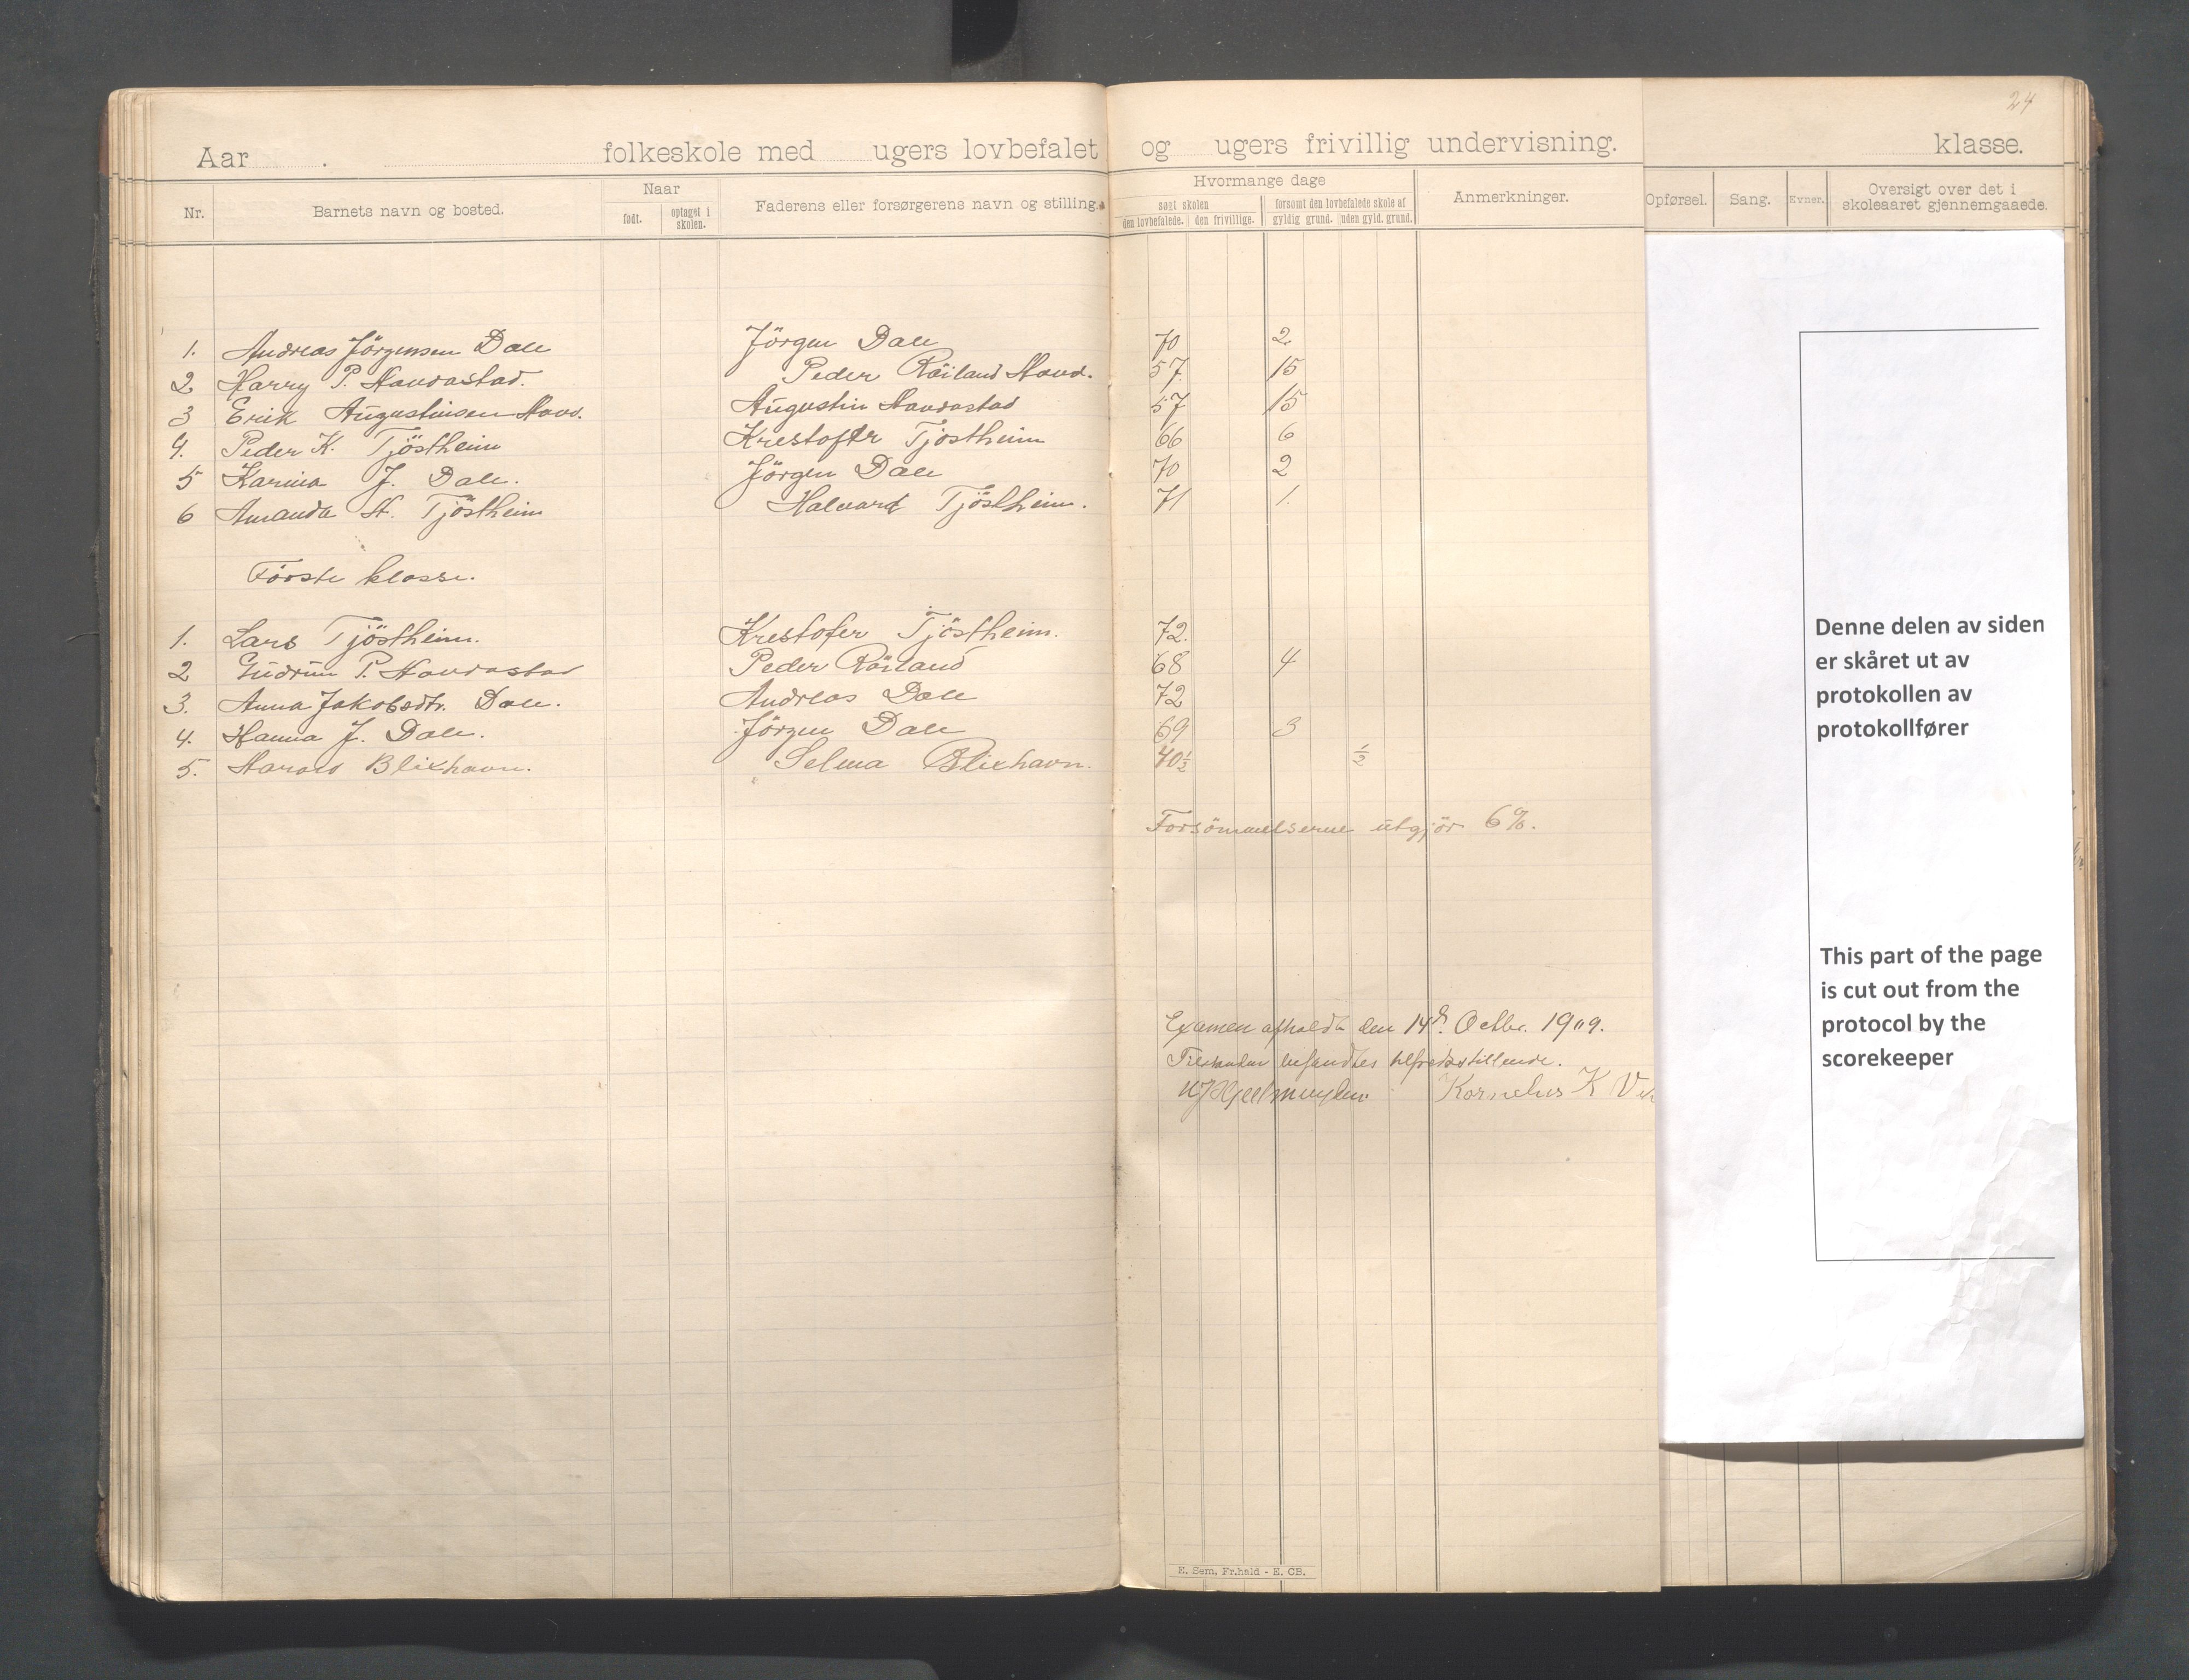 24
Aar . folkeskole med ugers lovbefalet og ugers frivillig undervisning. klasse.
Nr. Barnets navn og bosted. Naar født. optaget i skolen. Faderens eller forsørgerens navn og stilling. Hvormange dage søgt skolen den lovbefalede. den frivillige. forsømt den lovbefalede skole af gyldig grund. uden gyld. grund. Anmerkninger. Opførsel. Sang. Evner. Oversigt over det i skoleaaret gjennemgaaede.
1. Andreas Jörgensen Dale Jörgen Dale 70 2
2 Harry P. Havdastad. Peder Röiland Havd. 57 15
3 Erik Augustinsen Havd. Augustin Havdastad 57 15
4. Peder K. Tjöstheim Krestofer Tjöstheim 66 6
5 Karina J. Dale. Jörgen Dale 70 2
6 Amanda H. Tjöstheim Halvard Tjöstheim. 71 1.
Förste klasse.
1. Lars Tjöstheim. Krestofer Tjöstheim. 72.
2 Gudrun P. Havdastad Peder Röiland 68 4
3. Anna Jakobsdtr. Dale. Andreas Dale 72
4. Hanna J. Dale. Jörgen Dale 69 3
5. Harald Blixhavn. Selma Blixhavn. 40½ ½
Forsömmelserne utgjör 6%.
Examen afholdt den 14d. Octbr. 1909.
befandtes tilfredsstillende.
Kornelius K
E. Sem, Fr.hald - E. CB.
Denne delen av siden
er skåret ut av
protokollen av
protokollfører
This part of the page
is cut out from the
protocol by the
scorekeeper